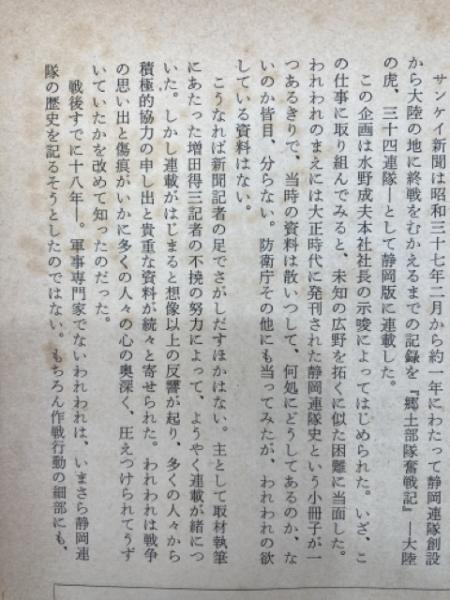 サンケイ新聞は昭和三十七年二月から約一年にわたって静岡連隊創設
から大陸の地に終戦をむかえるまでの記録を『郷土部隊奮戦記』―大陸
の虎、三十四連隊―として静岡版に連載した。
この企画は水野成夫本社社長の示唆によってはじめられた。いざ、こ
の仕事に取り組んでみると、未知の広野を拓くに似た困難に当面した。
われわれのまえには大正時代に発刊された静岡連隊史という小冊子が一
つあるきりで、当時の資料は散いつして、何処にどうしてあるのか、な
いのか皆目、分らない。防衛庁その他にも当ってみたが、われわれの欲
している資料はない。
こうなれば新聞記者の足でさがしだすほかはない。主として取材執筆
にあたった増田得三記者の不撓の努力によって、ようやく連載が緒につ
いた。しかし連載がはじまると想像以上の反響が起り、多くの人々から
積極的協力の申し出と貴重な資料が続々と寄せられた。われわれは戦争
の思い出と傷痕がいかに多くの人々の心の奥深く、圧えつけられてうず
いていたかを改めて知ったのだった。
戦後すでに十八年―。軍事専門家でないわれわれは、いまさら静岡連
隊の歴史を記るそうとしたのではない。もちろん作戦行動の細部にも、